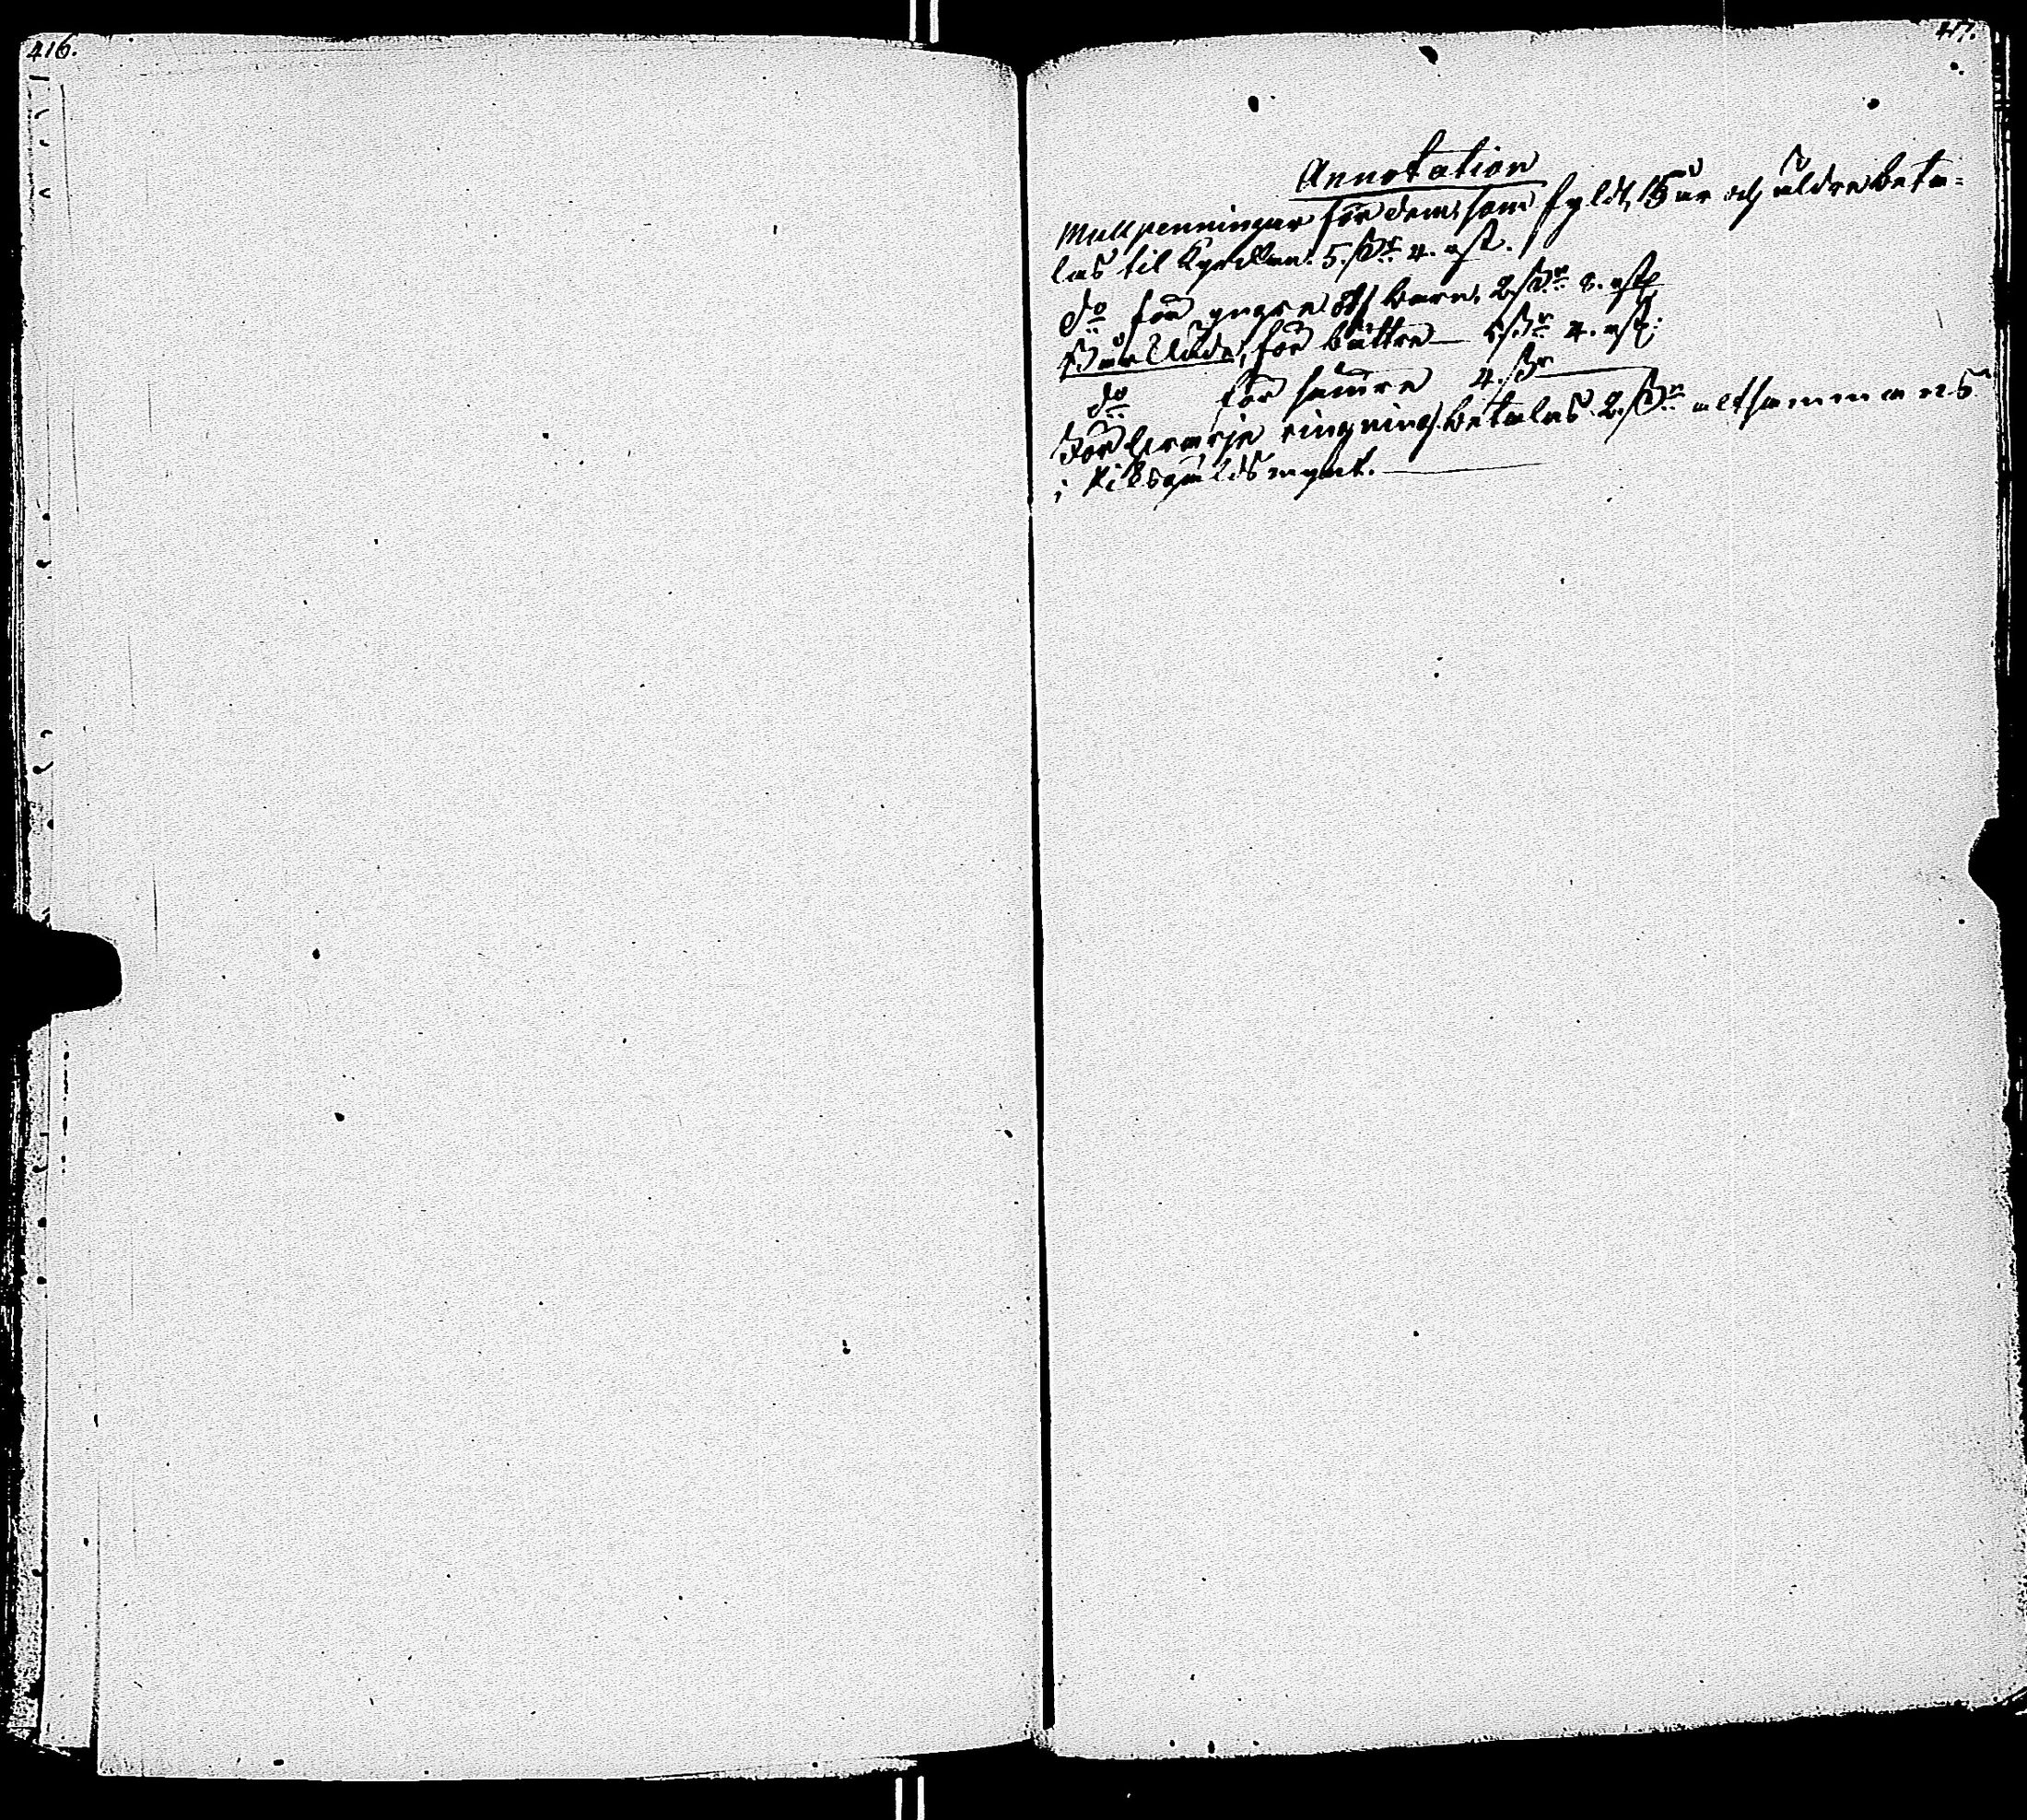 416.
417.
Annotation
Mullpenningar för dem, som fyldt 15 år och äldre beta=
las til Kyrckan. 5. sk:r 4. rst.
d:o för yngre och barn, 2 sk:r 8. rst
Bår Kläde, för bättre 5 sk:r 4. rst:
d:o för sämre 4. sk:r
För hvarje ringning betalas 2. sk:r altsammans
i Riksgälds mynt.